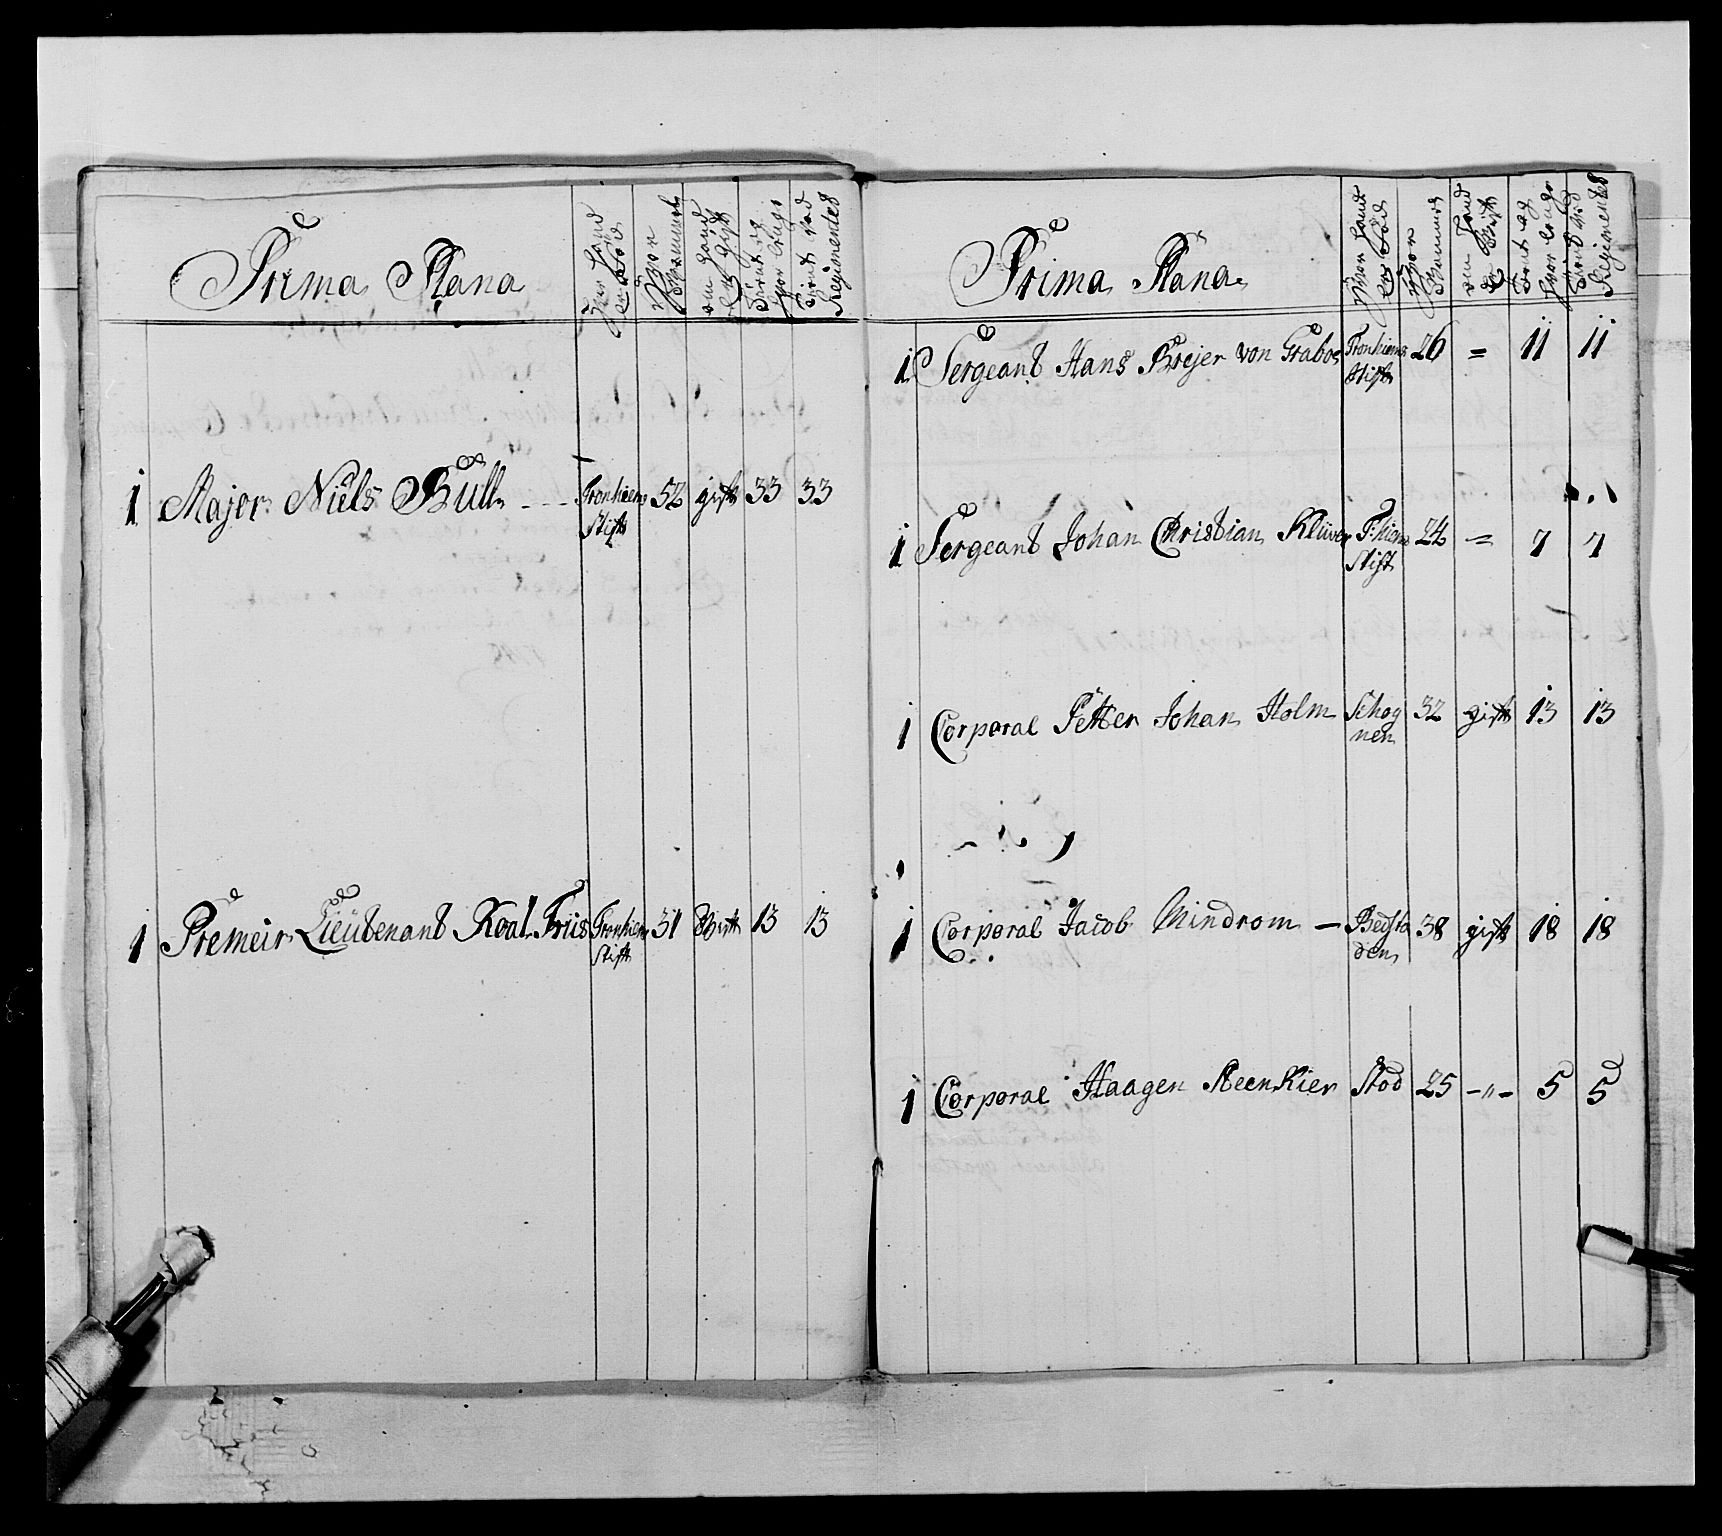 Prima Plana
Hvor hand er fød
Hvor gammel
om hand er gift
Tient og hvor lenge
Tient ved Regimentet
1 Major Niels Büll - - - Tronhiems Stift 52 gift 33 33
1 Premeir Lieütenant Roal Friis Tronhiems Stift 31 Gift 13 13
Prima Plana
Hvor hand er fød
Hvor Gammel
om hand er Gift
Tient og hvor lenge
Tient ved Regimentet
1 Sergeant Hans Brejer von Grabou Tronhiems Stift 26 = 11 11
1 Sergeant Johan Christian Klüver T:hiems Stift 24 = 7 7
1 Corporal Petter Johan Holm Schog
nen 32 gift 13 13
1 Corporal Jacob Mindrom - Bedsta
den 38 gift 18 18
1 Corporal Haagen SteenKier Stod 25 -"- 5 5